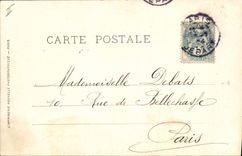 CARTE POSTALE
Mademoiselle Debats
10, Rue de Bellechasse
Paris